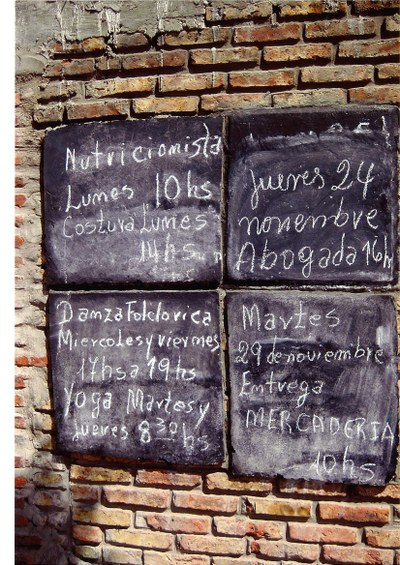 Nutricionista
Lunes 10hs
Costura Lunes
14hs.
Jueves 24
noviembre
Abogada 16h
Danza Folclorica
Miercoles y viernes
17hs a 19hs
Yoga Martes y
Jueves 8 30 hs
Martes
29 de noviembre
Entrega
MERCADERIA
10hs